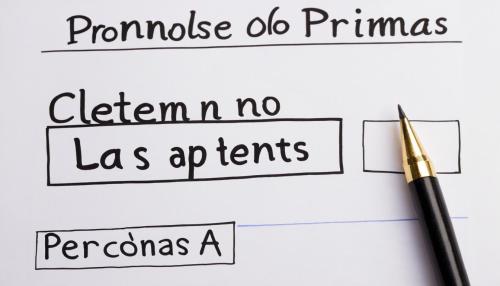 Pronnolse o6o Primmas
Cletem n no
Las aptents
Percònas A